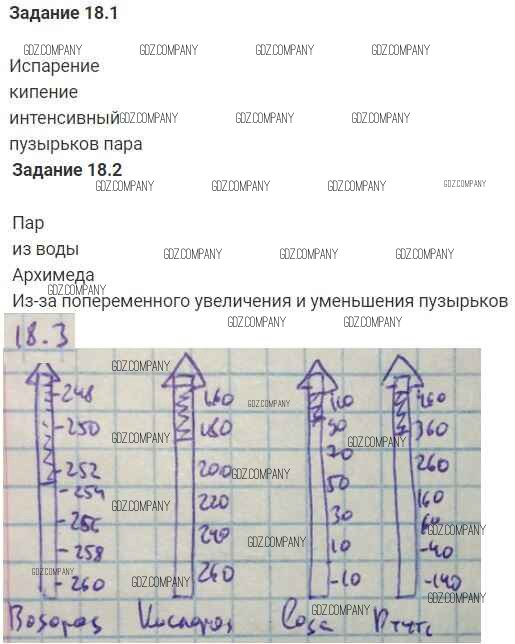 Задание 18.1
GDZ.COMPANY GDZ.COMPANY GDZ.COMPANY GDZ.COMPANY
Испарение
кипение
интенсивный GDZ.COMPANY GDZ.COMPANY GDZ.COMPANY
пузырьков пара
Задание 18.2
GDZ.COMPANY GDZ.COMPANY GDZ.COMPANY GDZ.COMPANY
Пар
из воды GDZ.COMPANY GDZ.COMPANY GDZ.COMPANY
Архимеда
GDZ.COMPANY
Из-за попеременного увеличения и уменьшения пузырьков
GDZ.COMPANY GDZ.COMPANY
18.3
GDZ.COMPANY
-248 160 110 460
GDZ.COMPANY
-250 180 90 360
GDZ.COMPANY GDZ.COMPANY
-252 200 70 260
GDZ.COMPANY
-254 220 50 160
GDZ.COMPANY
-256 240 30 60
GDZ.COMPANY GDZ.COMPANY
-258 260 10 -40
GDZ.COMPANY GDZ.COMPANY
-260 -10 -140
GDZ.COMPANY GDZ.COMPANY
Водород Кислород Ртуть